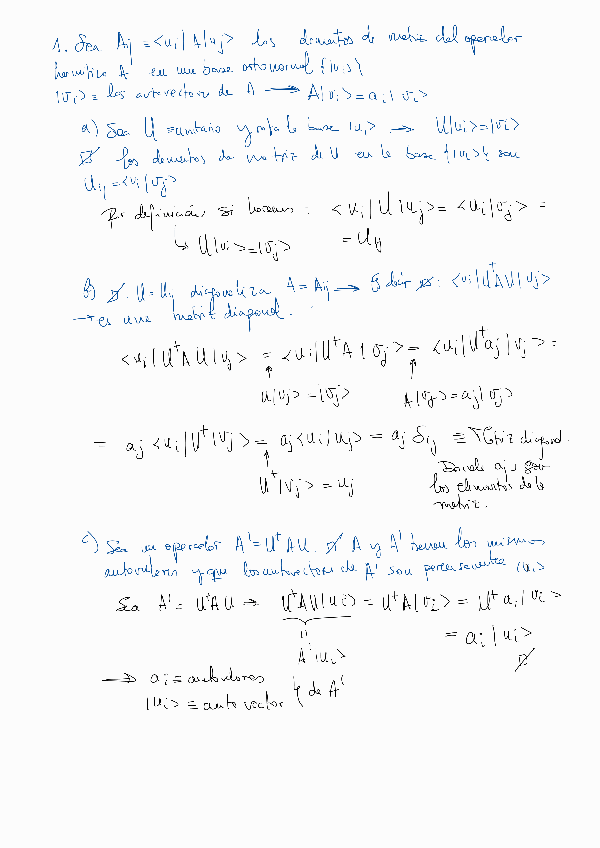 1. Sea Aij = <ui|A|uj> los elementos de matriz del operador
hermítico A en una base ortonormal {|ui>}
|vi> = los autovectores de A → A|vi> = ai|vi>
a) Sea U = unitario y rota la base |ui> → U|ui> = |vi>
D/ los elementos de matriz de U en la base {|ui>} son
Uij = <ui|vj>
Por definición si hacemos: <ui|U|uj> = <ui|vj> =
↳ U|uj> = |vj> = Uij
b) D/. U = Uij diagonaliza A = Aij → Es decir D/: <ui|U†AU|uj>
→ es una matriz diagonal.
<ui|U†AU|uj> = <ui|U†A|vj> = <ui|U†aj|vj> =
U|uj> = |vj> A|vj> = aj|vj>
= aj<ui|U†|vj> = aj<ui|uj> = aj δij ≡ Mtriz diagonal.
U†|vj> = uj Donde aj son
los elementos de la
matriz.
c) Sea un operador A' = U†AU. D/ A y A' tienen los mismos
autovalores y que los autovectores de A' son |ui>
Sea A' = U†AU → U†AU|ui> = U†A|vi> = U†ai|vi>
= ai|ui>
A'|ui>
→ ai = autovalores
|ui> = autovector } de A'